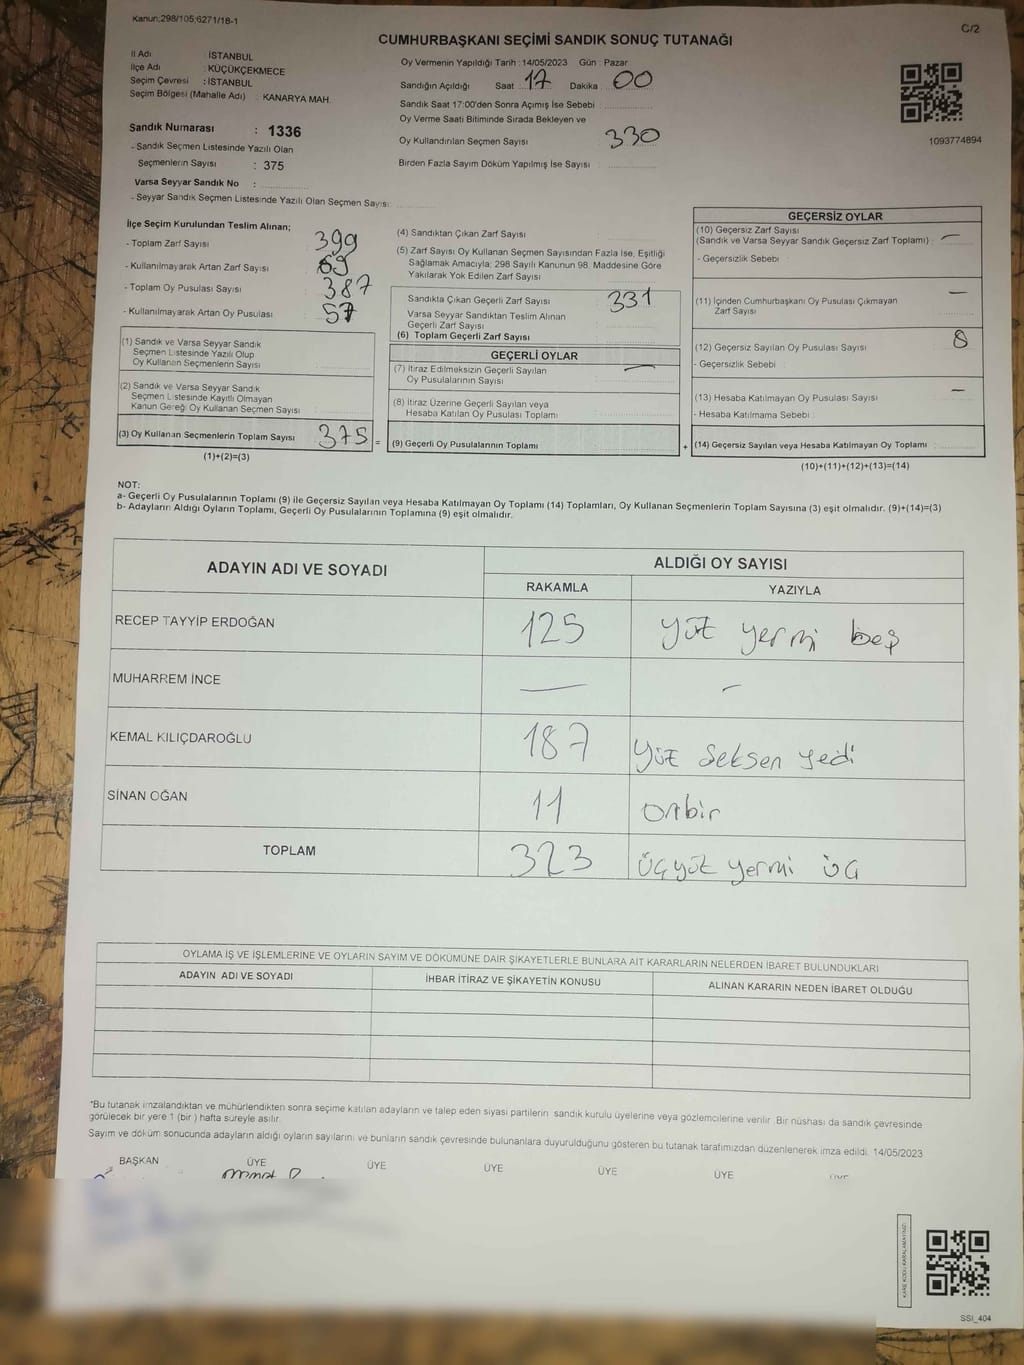 Kanun;298/105;6271/18-1
C/2
CUMHURBAŞKANI SEÇİMİ SANDIK SONUÇ TUTANAĞI
İl Adı : İSTANBUL
İlçe Adı : KÜÇÜKÇEKMECE
Seçim Çevresi : İSTANBUL
Seçim Bölgesi (Mahalle Adı) : KANARYA MAH.
Sandık Numarası : 1336
- Sandık Seçmen Listesinde Yazılı Olan
Seçmenlerin Sayısı : 375
Varsa Seyyar Sandık No :
- Seyyar Sandık Seçmen Listesinde Yazılı Olan Seçmen Sayısı:
Oy Vermenin Yapıldığı Tarih : 14/05/2023 Gün : Pazar
Sandığın Açıldığı Saat 17 Dakika 00
Sandık Saat 17:00'den Sonra Açımış İse Sebebi
Oy Verme Saati Bitiminde Sırada Bekleyen ve
Oy Kullandırılan Seçmen Sayısı 330
Birden Fazla Sayım Döküm Yapılmış İse Sayısı
1093774894
İlçe Seçim Kurulundan Teslim Alınan;
- Toplam Zarf Sayısı 399
- Kullanılmayarak Artan Zarf Sayısı 69
- Toplam Oy Pusulası Sayısı 387
- Kullanılmayarak Artan Oy Pusulası 57
(1) Sandık ve Varsa Seyyar Sandık
Seçmen Listesinde Yazılı Olup
Oy Kullanan Seçmenlerin Sayısı
(2) Sandık ve Varsa Seyyar Sandık
Seçmen Listesinde Kayıtlı Olmayan
Kanun Gereği Oy Kullanan Seçmen Sayısı
(3) Oy Kullanan Seçmenlerin Toplam Sayısı 375 =
(1)+(2)=(3)
(4) Sandıktan Çıkan Zarf Sayısı
(5) Zarf Sayısı Oy Kullanan Seçmen Sayısından Fazla İse, Eşitliği
Sağlamak Amacıyla; 298 Sayılı Kanunun 98. Maddesine Göre
Yakılarak Yok Edilen Zarf Sayısı
Sandıkta Çıkan Geçerli Zarf Sayısı 331
Varsa Seyyar Sandıktan Teslim Alınan
Geçerli Zarf Sayısı
(6) Toplam Geçerli Zarf Sayısı
GEÇERLİ OYLAR
(7) İtiraz Edilmeksizin Geçerli Sayılan —
Oy Pusulalarının Sayısı
(8) İtiraz Üzerine Geçerli Sayılan veya
Hesaba Katılan Oy Pusulası Toplamı
(9) Geçerli Oy Pusulalarının Toplamı +
GEÇERSİZ OYLAR
(10) Geçersiz Zarf Sayısı
(Sandık ve Varsa Seyyar Sandık Geçersiz Zarf Toplamı) : —
- Geçersizlik Sebebi :
(11) İçinden Cumhurbaşkanı Oy Pusulası Çıkmayan —
Zarf Sayısı
(12) Geçersiz Sayılan Oy Pusulası Sayısı 8
- Geçersizlik Sebebi :
(13) Hesaba Katılmayan Oy Pusulası Sayısı —
- Hesaba Katılmama Sebebi :
(14) Geçersiz Sayılan veya Hesaba Katılmayan Oy Toplamı
(10)+(11)+(12)+(13)=(14)
NOT:
a- Geçerli Oy Pusulalarının Toplamı (9) ile Geçersiz Sayılan veya Hesaba Katılmayan Oy Toplamı (14) Toplamları, Oy Kullanan Seçmenlerin Toplam Sayısına (3) eşit olmalıdır. (9)+(14)=(3)
b- Adayların Aldığı Oyların Toplamı, Geçerli Oy Pusulalarının Toplamına (9) eşit olmalıdır.
ADAYIN ADI VE SOYADI
ALDIĞI OY SAYISI
RAKAMLA YAZIYLA
RECEP TAYYİP ERDOĞAN 125 yüz yermi beş
MUHARREM İNCE — —
KEMAL KILIÇDAROĞLU 187 yüz seksen yedi
SİNAN OĞAN 11 onbir
TOPLAM 323 üçyüz yermi üç
OYLAMA İŞ VE İŞLEMLERİNE VE OYLARIN SAYIM VE DÖKÜMÜNE DAİR ŞİKAYETLERLE BUNLARA AİT KARARLARIN NELERDEN İBARET BULUNDUKLARI
ADAYIN ADI VE SOYADI
İHBAR İTİRAZ VE ŞİKAYETİN KONUSU
ALINAN KARARIN NEDEN İBARET OLDUĞU
*Bu tutanak imzalandıktan ve mühürlendikten sonra seçime katılan adayların ve talep eden siyasi partilerin sandık kurulu üyelerine veya gözlemcilerine verilir. Bir nüshası da sandık çevresinde
görülecek bir yere 1 (bir ) hafta süreyle asılır.
Sayım ve döküm sonucunda adayların aldığı oyların sayılarını ve bunların sandık çevresinde bulunanlara duyurulduğunu gösteren bu tutanak tarafımızdan düzenlenerek imza edildi. 14/05/2023
BAŞKAN ÜYE ÜYE ÜYE ÜYE ÜYE
SSI_404